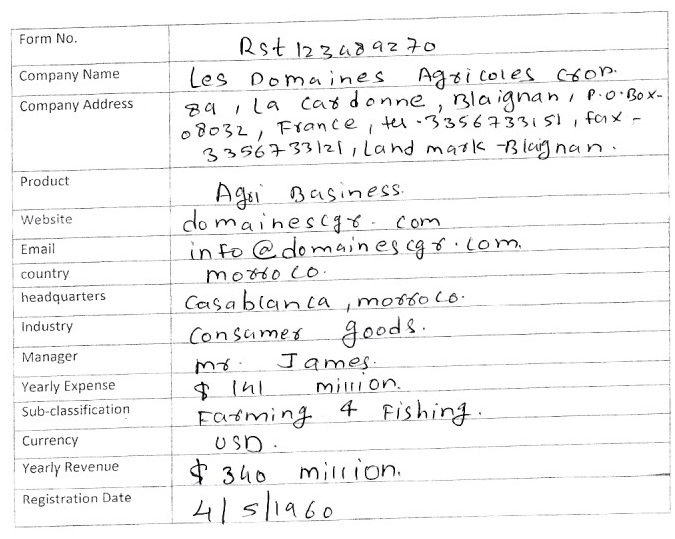 Form No. Rst123489270
Company Name Les Domaines Agricoles Crop.
Company Address 89, La Cardonne, Blaignan, P.O.Box-
08032, France, tel-3356733151, fax-
3356733121, Land mark-Blaignan.
Product Agri Basiness.
Website domainescgr.com
Email info@domainescgr.com.
country morroco.
headquarters Casablanca, morroco.
Industry Consumer goods.
Manager mr. James.
Yearly Expense $ 141 million.
Sub-classification Farming & Fishing.
Currency USD.
Yearly Revenue $ 340 million.
Registration Date 4/5/1960